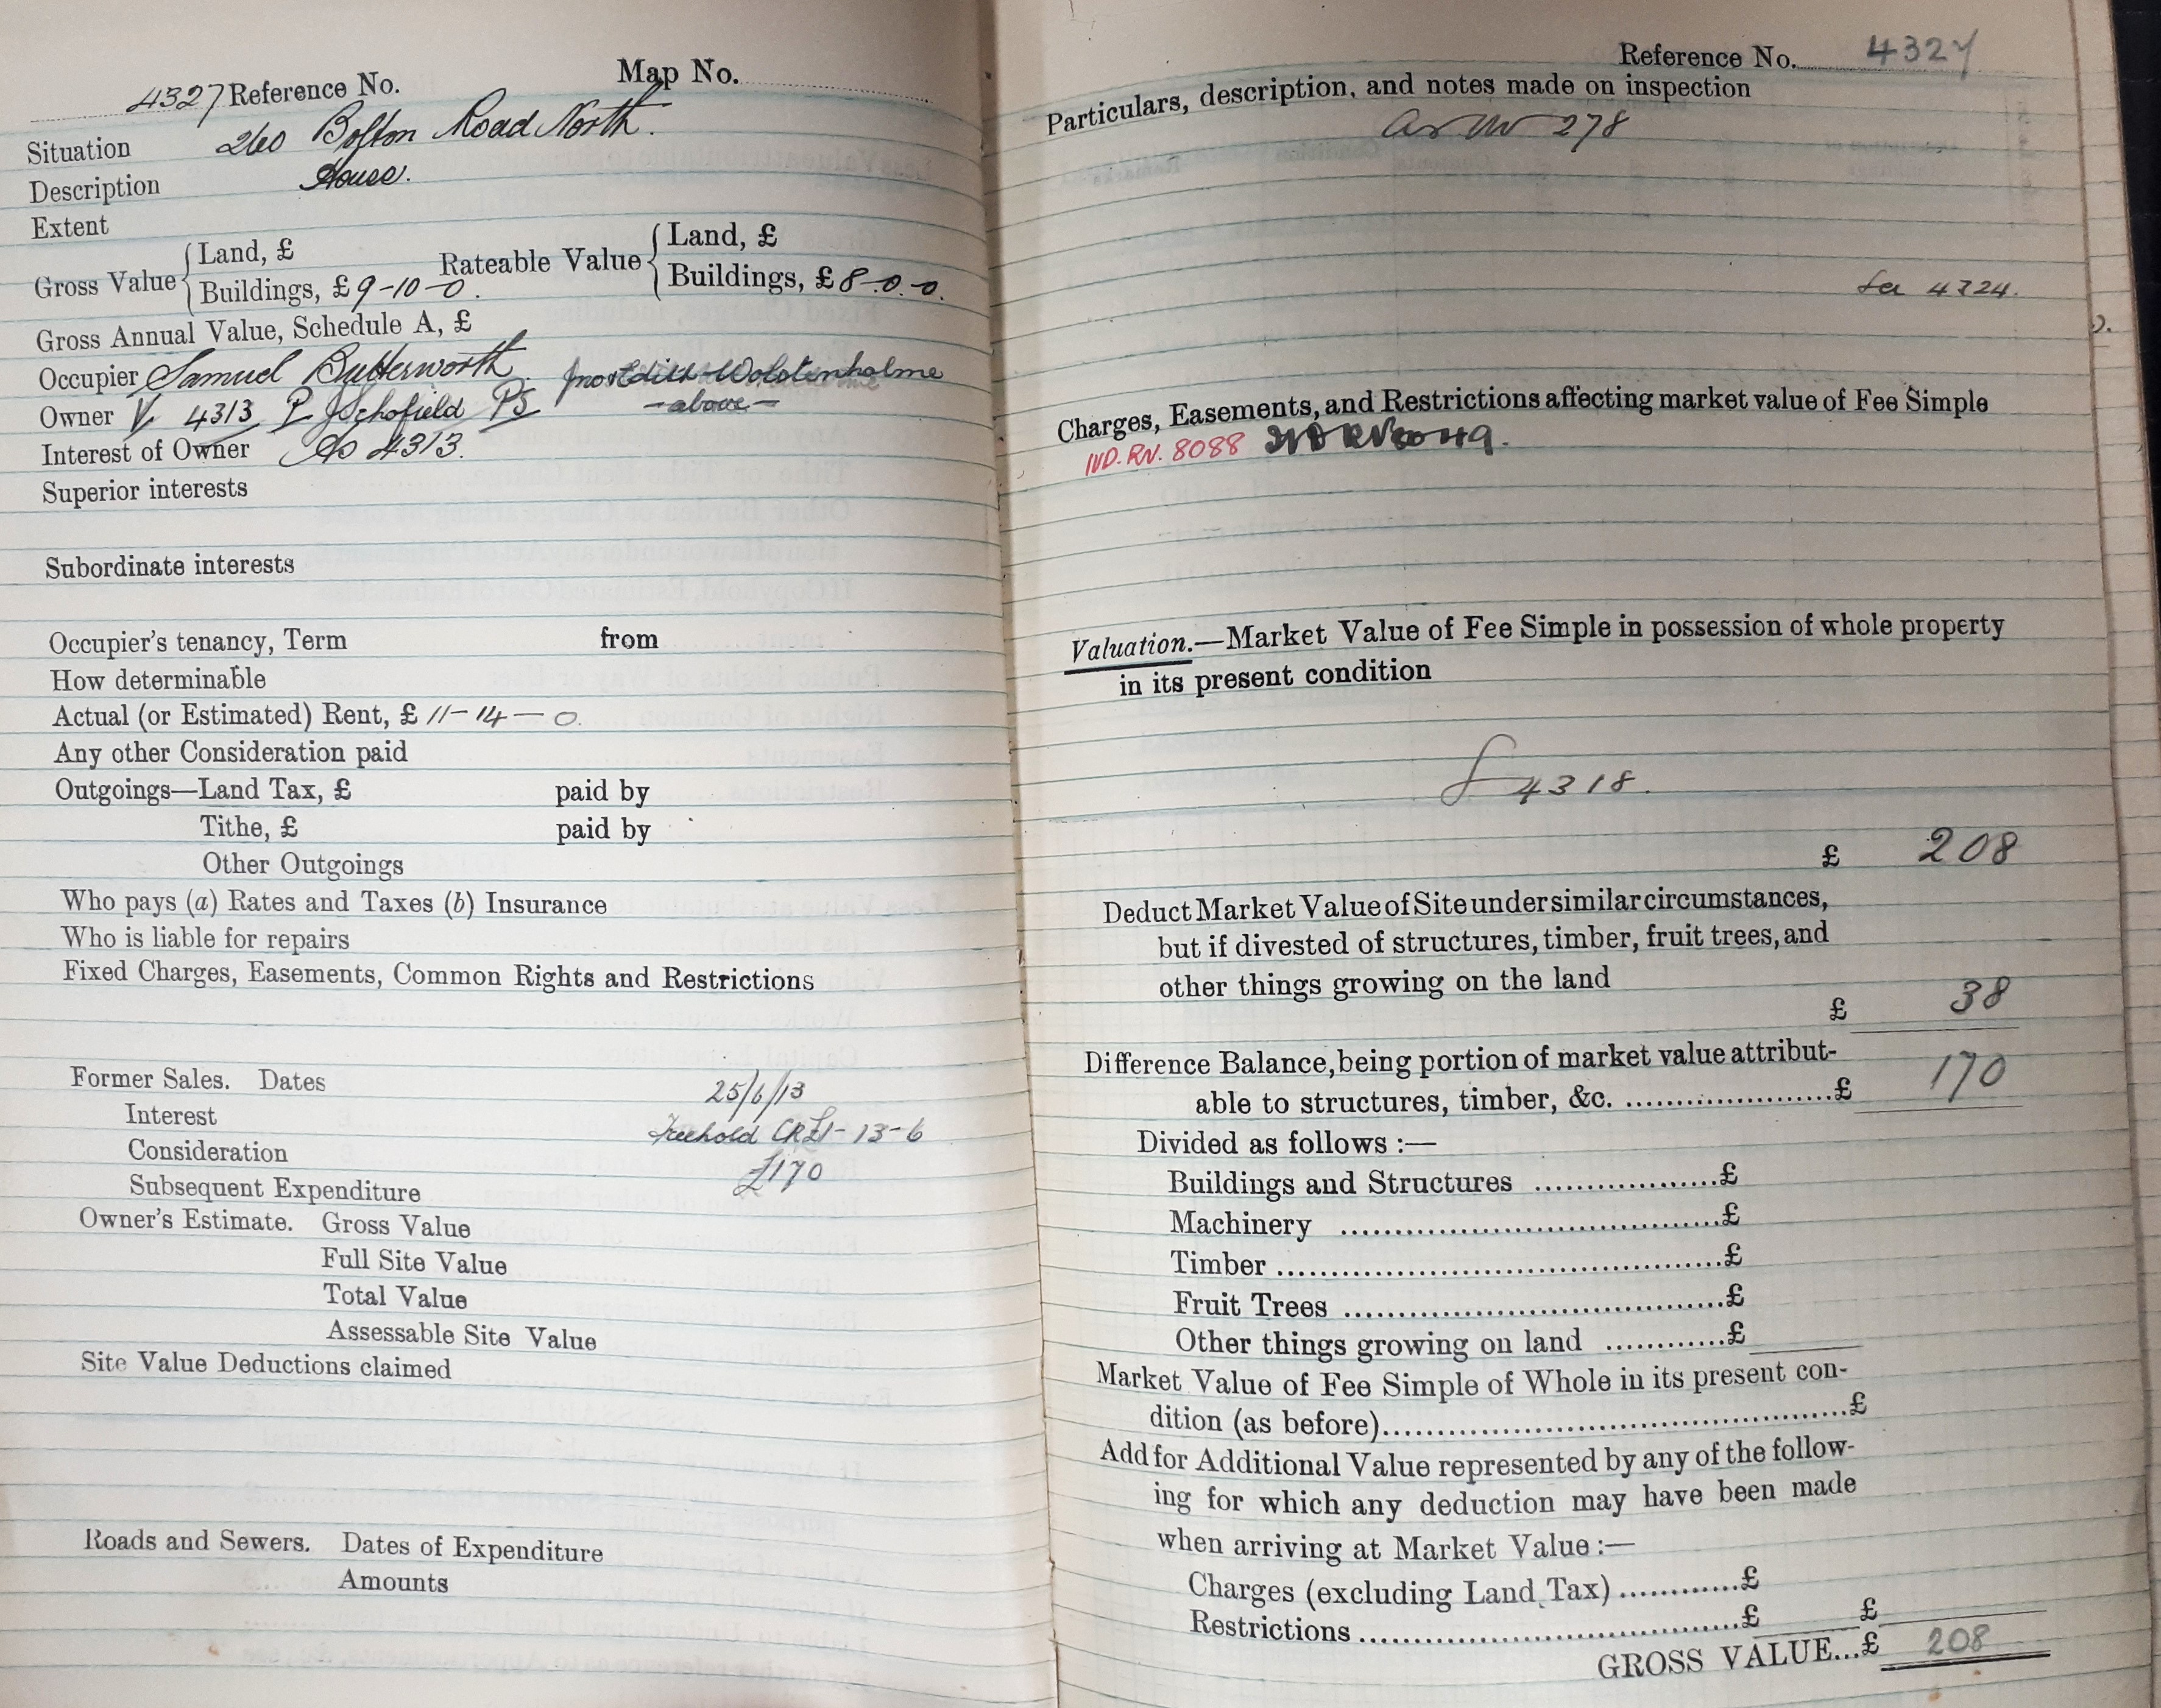 4327 Reference No. Map No.
Situation 260 Bolton Road North.
Description House.
Extent
Gross Value { Land, £
Buildings, £ 9-10-0. Rateable Value { Land, £
Buildings, £ 8-0-0.
Gross Annual Value, Schedule A, £
Occupier Samuel Butterworth Wolstenholme
Owner V. 4313 P J Schofield PS - above -
Interest of Owner Do 4313.
Superior interests
Subordinate interests
Occupier's tenancy, Term from
How determinable
Actual (or Estimated) Rent, £ 11-14-0.
Any other Consideration paid
Outgoings—Land Tax, £ paid by
Tithe, £ paid by
Other Outgoings
Who pays (a) Rates and Taxes (b) Insurance
Who is liable for repairs
Fixed Charges, Easements, Common Rights and Restrictions
Former Sales. Dates 25/6/13
Interest Freehold CR £1-13-6
Consideration £170
Subsequent Expenditure
Owner's Estimate. Gross Value
Full Site Value
Total Value
Assessable Site Value
Site Value Deductions claimed
Roads and Sewers. Dates of Expenditure
Amounts
Reference No. 4327
Particulars, description, and notes made on inspection
as No 278
See 4324.
Charges, Easements, and Restrictions affecting market value of Fee Simple
IVD. RV. 8088
Valuation.—Market Value of Fee Simple in possession of whole property
in its present condition
4318.
£ 208
Deduct Market Value of Site under similar circumstances,
but if divested of structures, timber, fruit trees, and
other things growing on the land
£ 38
Difference Balance, being portion of market value attribut-
able to structures, timber, &c. ....................£ 170
Divided as follows :—
Buildings and Structures ..................£
Machinery ......................................£
Timber ............................................£
Fruit Trees ......................................£
Other things growing on land ............£
Market Value of Fee Simple of Whole in its present con-
dition (as before)..............................................£
Add for Additional Value represented by any of the follow-
ing for which any deduction may have been made
when arriving at Market Value :—
Charges (excluding Land Tax) ............£
Restrictions ......................................£ £
GROSS VALUE...£ 208